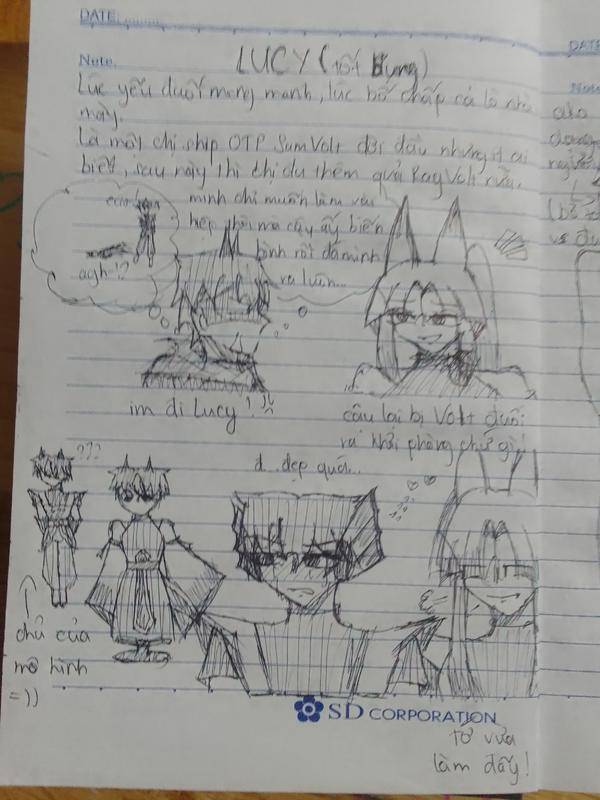 DATE
Note.
LUCY (tốt bụng)
Lúc yếu đuối mong manh, lúc bố chấp cả lò nhà
mày.
Là một chị ship OTP SumVolt đời đầu nhưng ít ai
biết, sau này thì chị đu thêm quả RayVolt nữa.
mình chỉ muốn làm
hẹp thôi mà cậu ấy biến
bình rồi đá mình
ra luôn...
agh!?
im đi Lucy!
cậu lại bị Volt đuổi
ra khỏi phòng chứ gì!
đ..đẹp quá...
???
chủ của
mô hình
=))
SD CORPORATION
Tớ vừa
làm đấy!
DATE
Note